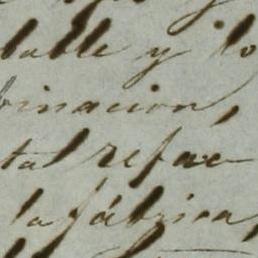 talle y lo
binacion,
tal refac
la fábrica,